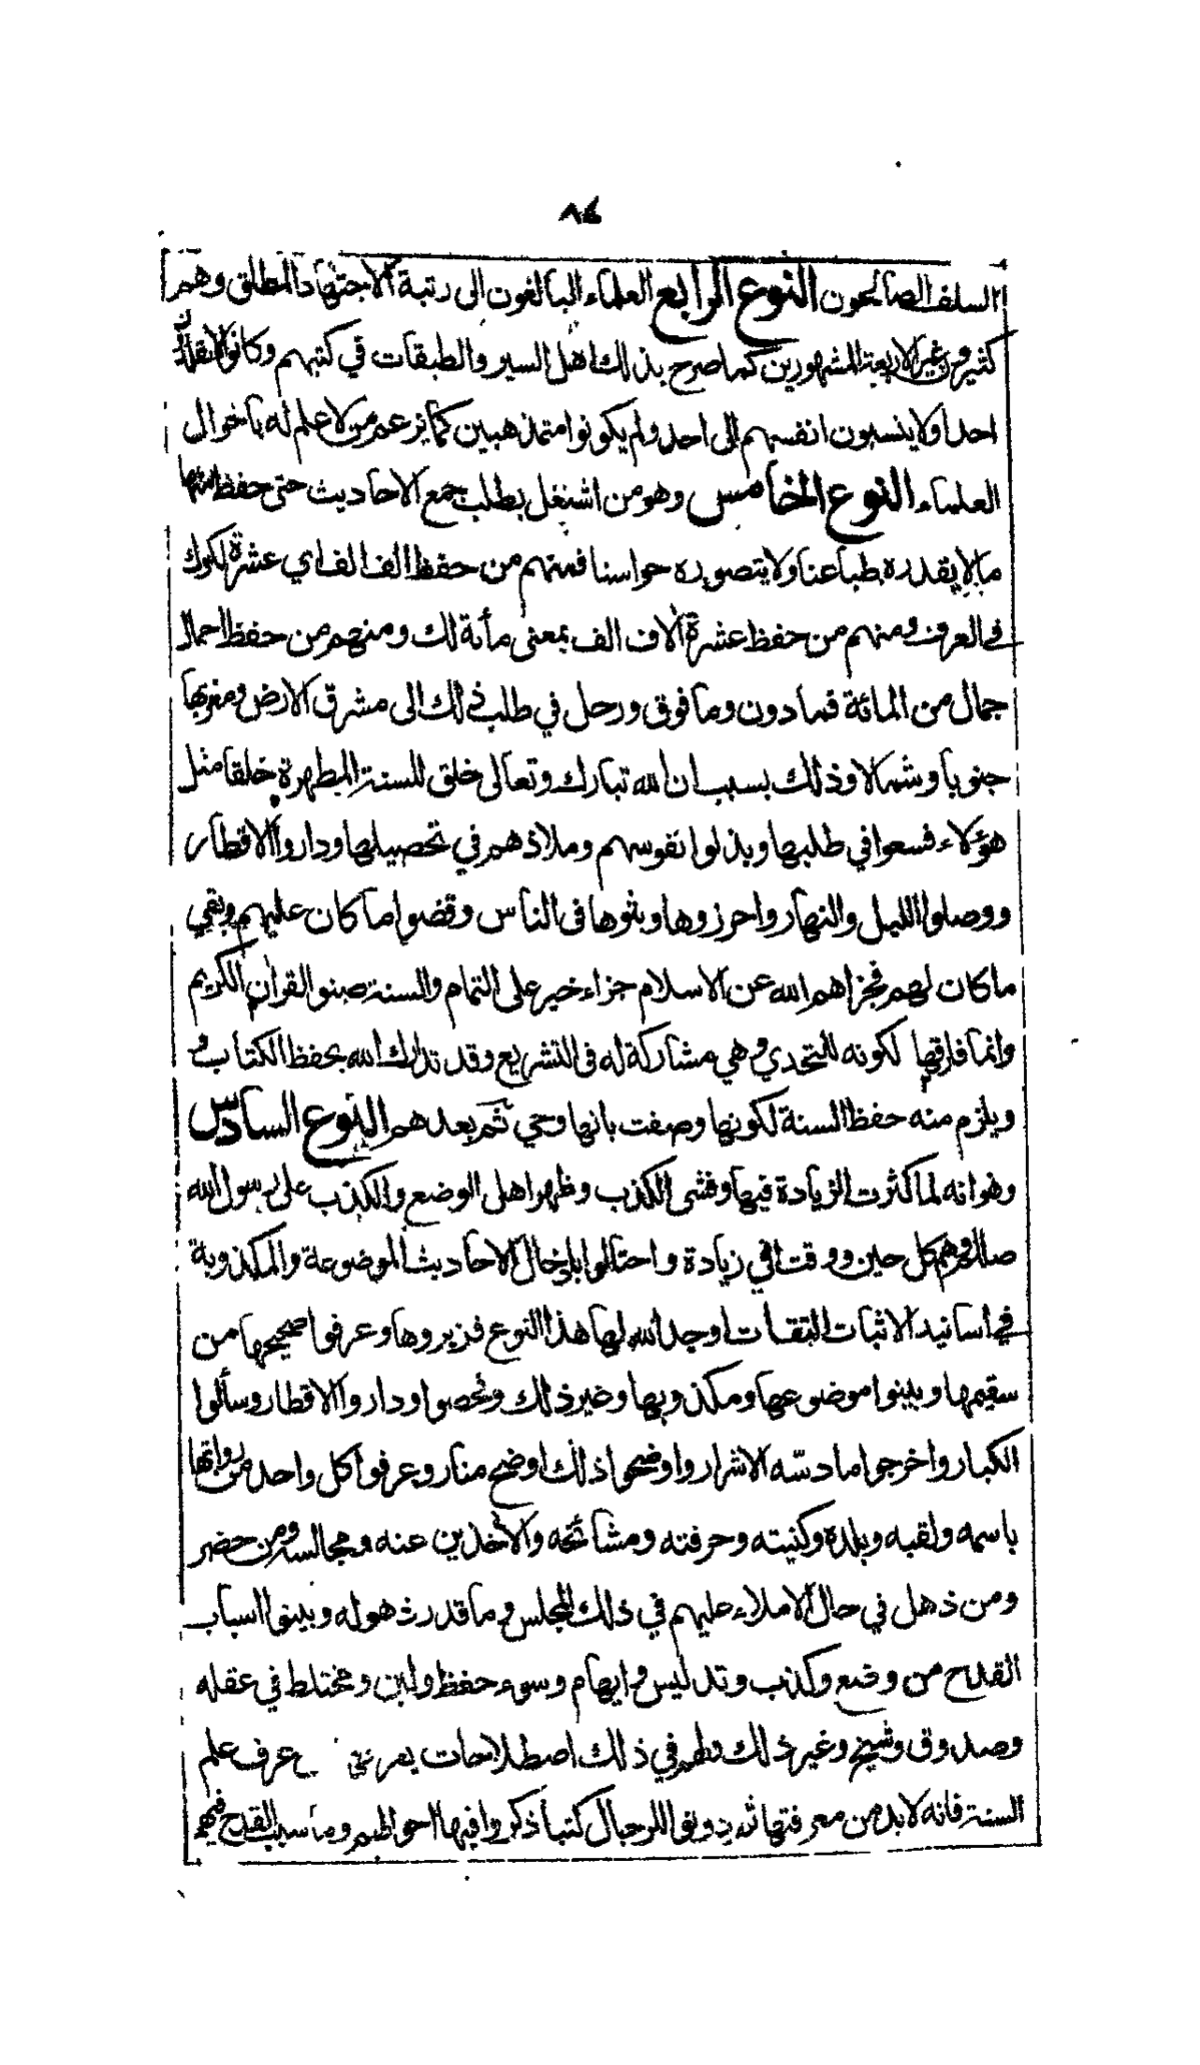 ٨٤
السلف الصالحون النوع الرابع العلماء البالغون الى رتبة الاجتهاد المطلق وهم
كثيرون غير الاربعة المشهورين كما صرح بذلك اهل السير والطبقات في كتبهم وكانوا لا يقلدون
احدا ولا ينسبون انفسهم الى احد ولم يكونوا متمذهبين كما يزعم من لا علم له باحوال
العلماء النوع الخامس وهو من اشتغل بطلب جمع الاحاديث حتى حفظ منها
ما لا يقدره طباعنا ولا يتصوره حواسنا فمنهم من حفظ الف الف اي عشرة لكوك
في العرف ومنهم من حفظ عشرة الاف الف بمعنى مأنة لك ومنهم من حفظ احمال
جمال من المائة فما دون وما فوق ورحل في طلب ذلك الى مشرق الارض ومغربها
جنوبا وشمالا وذلك بسبب ان الله تبارك وتعالى خلق للسنة المطهرة خلقا مثل
هؤلاء فسعوا في طلبها وبذلوا نفوسهم وملاذهم في تحصيلها وداروا الاقطار
ووصلوا الليل والنهار واحرزوها وبثوها فى الناس وقضوا ما كان عليهم وبقي
ما كان لهم فجزاهم الله عن الاسلام جزاء خير على التمام والسنة صنو القران الكريم
وانما فارقها لكونه للتحدي وهي مشاركة له فى التشريع وقد تدارك الله بحفظ الكتاب
ويلزم منه حفظ السنة لكونها وصفت بانها وحي ثم بعدهم النوع السادس
وهو انه لما كثرت الزيادة فيها وفشى الكذب وظهر اهل الوضع والكذب على رسول الله
صللم وهم كل حين ووقت في زيادة واحتالوا بادخال الاحاديث الموضوعة والمكذوبة
في اسانيد الاثبات الثقات اوجد الله لها هذا النوع فزبروها وعرفوا صحيحها من
سقيمها وبينوا موضوعها ومكذوبها وغير ذلك وفحصوا وداروا الاقطار وسألوا
الكبار واخرجوا ما دسّه الاشرار واوضحوا ذلك اوضح منار وعرفوا كل واحد من رواتها
باسمه ولقبه وبلده وكنيته وحرفته ومشائخه والأخذين عنه ومجالسه ومن حضر
ومن ذهل في حال الاملاء عليهم في ذلك المجلس وما قدر ذهوله وبينوا اسباب
القدح من وضع وكذب وتدليس وايهام وسوء حفظ ولين ومختلط في عقله
وصدوق وشيخ وغير ذلك ولهم في ذلك اصطلاحات يعرف عرف علم
السنة فانه لا بد من معرفتها ثم دونوا للرجال كتبا ذكروا فيها احوالهم وما سبب القدح فيهم